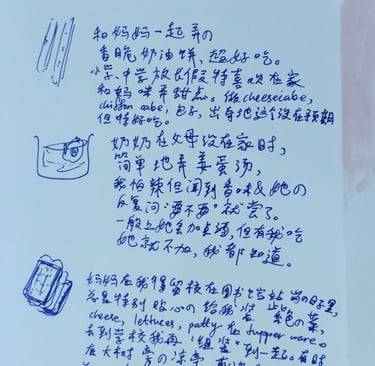 和妈妈一起弄の
香脆奶油饼,超好吃。
小学、中学放长假特喜欢在家
和妈咪弄甜点。做cheesecake,
chiffon cake,包子,出
但特好吃。
奶奶在父母没在家时,
简单地弄姜蛋汤,
我怕辣但闻到香味&她の
反复问"要不要"就尝了。
一般上她会加
她就不加,我都知道。
妈妈在我得留校在图书
总是特别贴心の给我
cheese, lettuces, patty 在 tupperware。
去到学校我再"组装"到一起。有时
在大树旁の凉亭